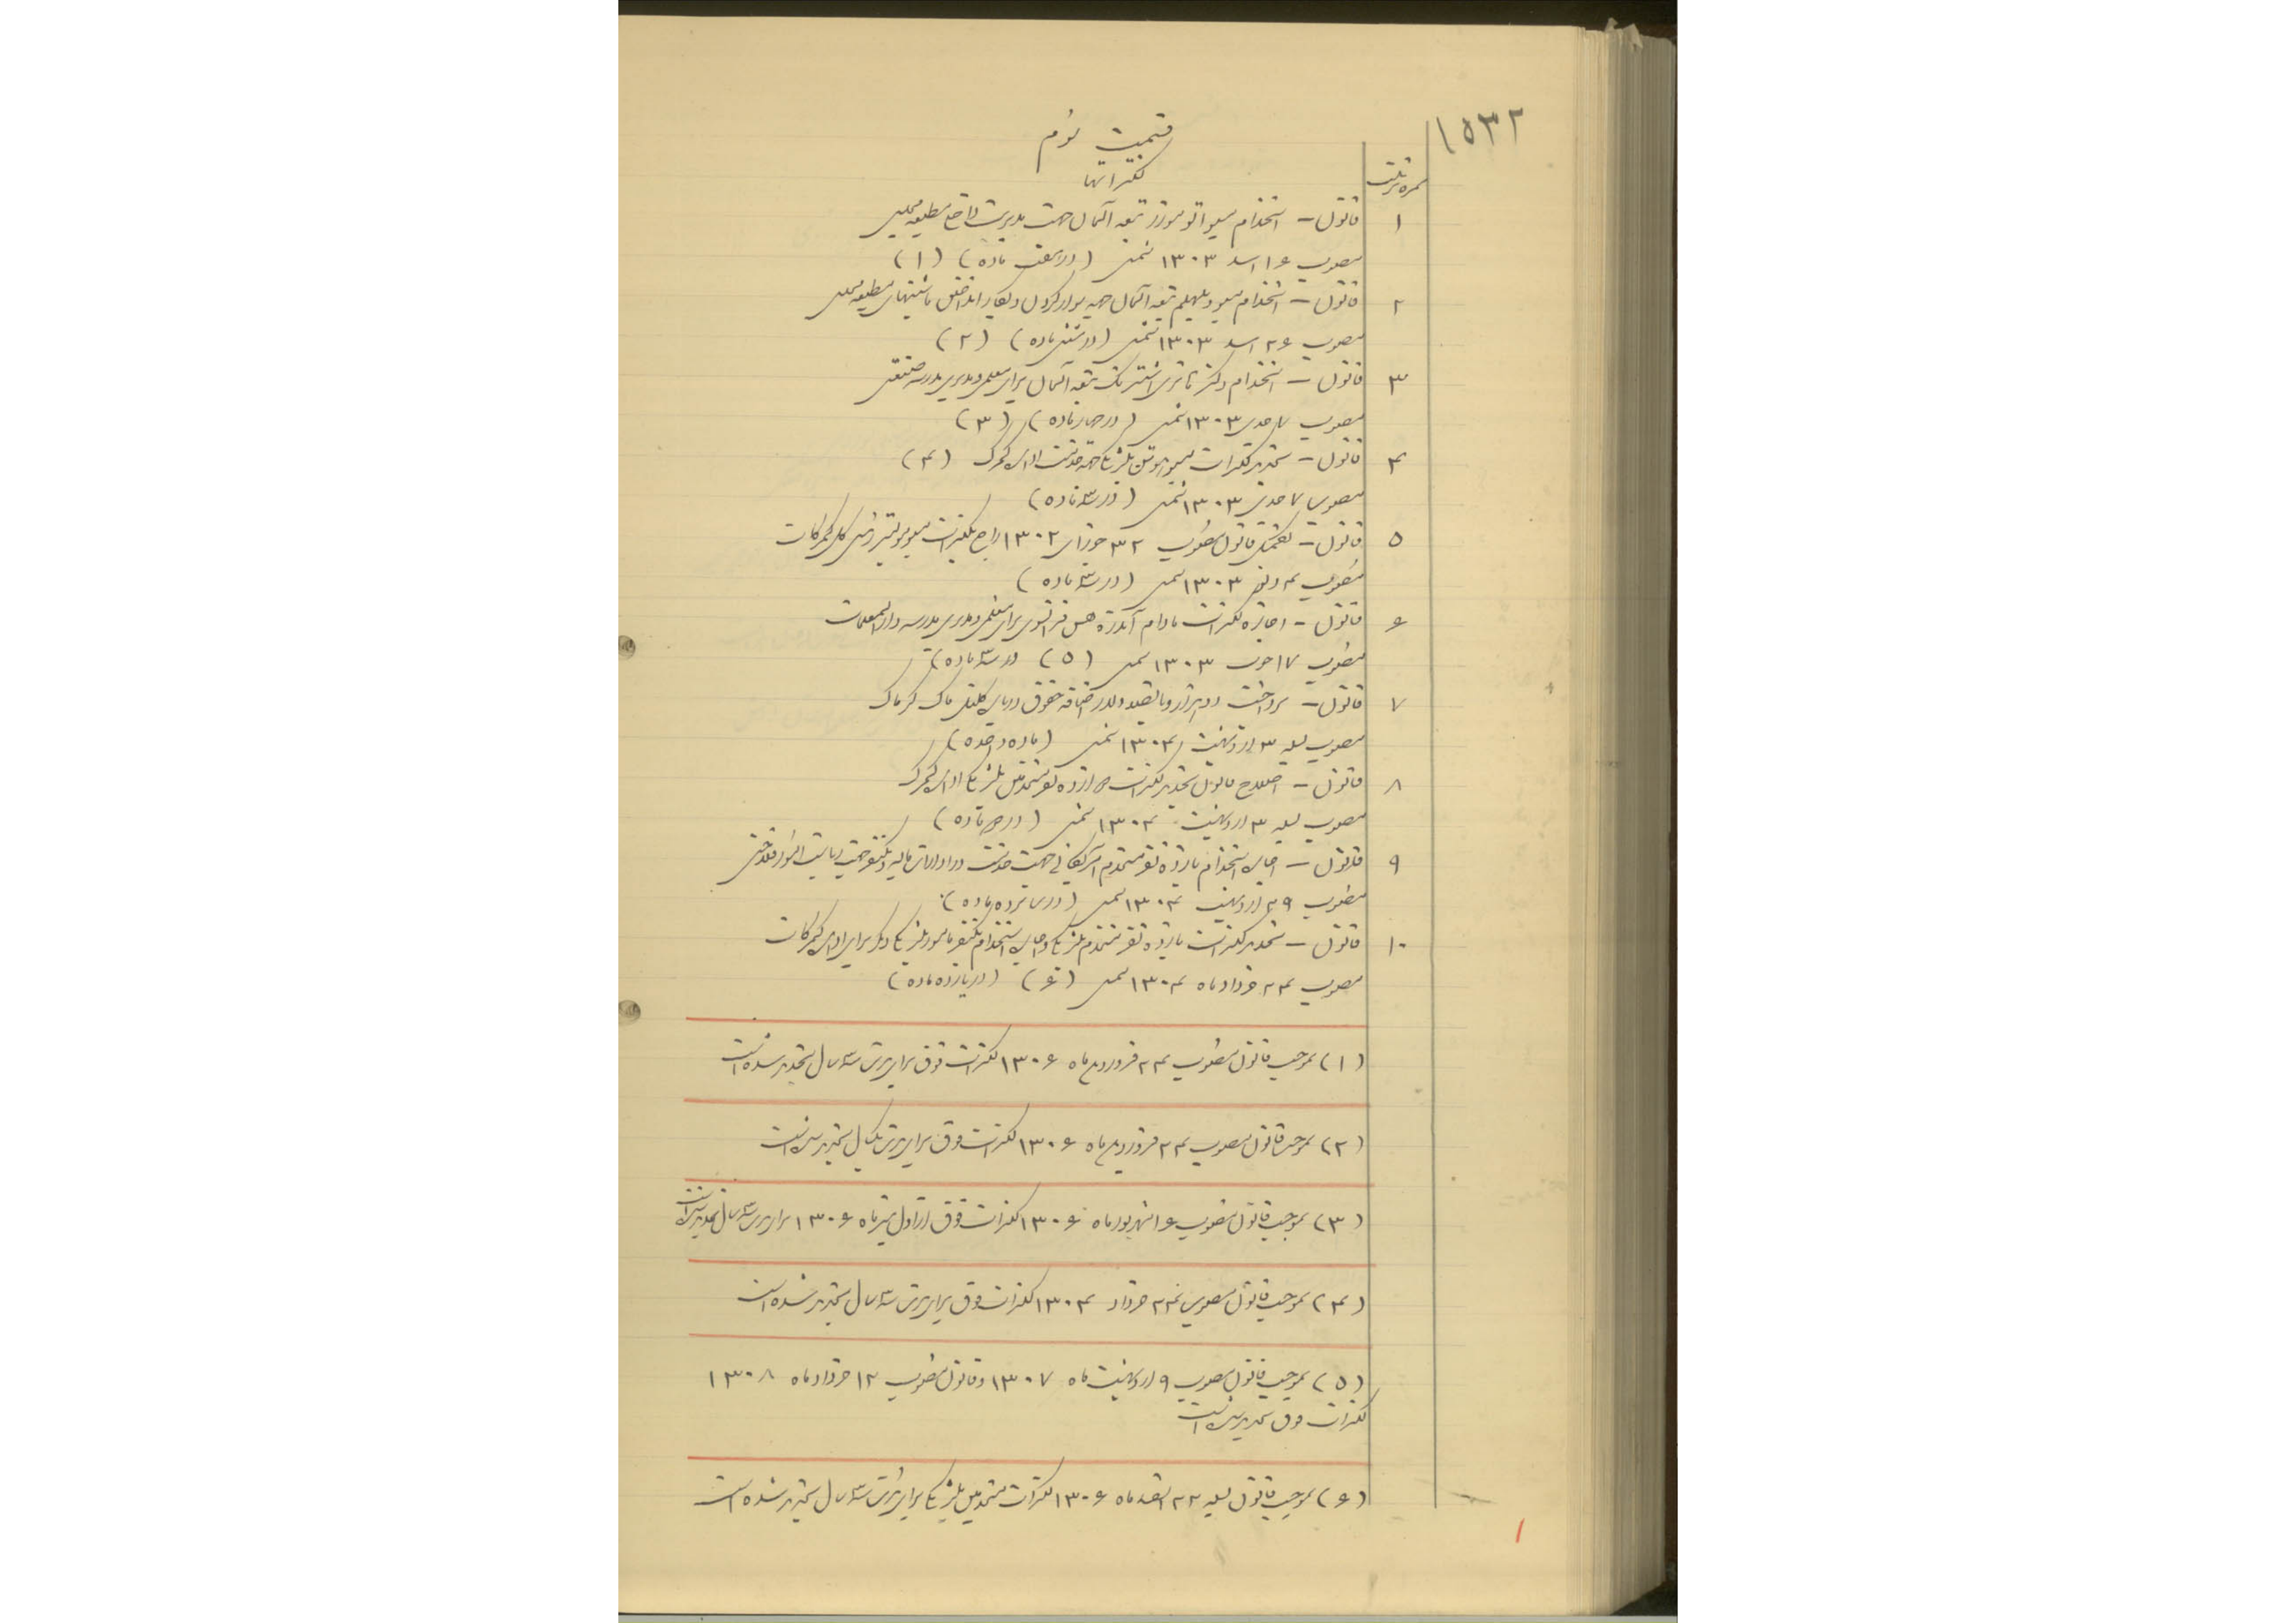 ۱۵۳۲
قسمت سوم
کنتراتها
نمره ترتیب
۱ قانون – استخدام مسیو اتو مورر تبعه آلمان جهت مدیریت فنی مطبعه مجلس
مصوب ۱۶ اسد ۱۳۰۳ شمسی (در هفت ماده) (۱)
۲ قانون – استخدام مسیو ویلهلم تبعه آلمان جهة سوار کردن و بکار انداختن ماشینهای مطبعه مجلس
مصوب ۲۶ اسد ۱۳۰۳ شمسی (در شش ماده) (۲)
۳ قانون – استخدام دکتر اشترنک تبعه آلمان برای معلمی و مدیری مدرسه صنعتی
مصوب ۷ جدی ۱۳۰۳ شمسی (در چهار ماده) (۳)
۴ قانون – تجدید کنترات مسیو بلژیکی جهة خدمت اداره گمرک (۴)
مصوب ۷ جدی ۱۳۰۳ شمسی (در سه ماده)
۵ قانون – تفسیر قانون مصوب ۲۳ جوزای ۱۳۰۲ راجع بکنترات مسیو مولیتور رئیس کل گمرکات
مصوب ۴ دلو ۱۳۰۳ شمسی (در سه ماده)
۶ قانون – اجازه کنترات مادام آندره هس فرانسوی برای معلمی و مدیری مدرسه دارالمعلمات
مصوب ۱۷ حوت ۱۳۰۳ شمسی (۵) (در سه ماده)
۷ قانون – پرداخت دو هزار و پانصد دلار اضافه حقوق دریاره کلنل ماک کرماک
مصوب لیله ۳ اردیبهشت ۱۳۰۴ شمسی (ماده واحده)
۸ قانون – اصلاح قانون تجدید کنترات چهارده نفر مستخدمین بلژیکی اداره گمرک
مصوب لیله ۳ اردیبهشت ۱۳۰۴ شمسی (در چهار ماده)
۹ قانون – اجازه استخدام یازده نفر مستخدم آمریکائی جهت خدمت در ادارات مالیه و یکنفر جهت ریاست امور فلاحتی
مصوب ۲۹ اردیبهشت ۱۳۰۴ شمسی (در سیزده ماده)
۱۰ قانون – تجدید کنترات یازده نفر مستخدم بلژیکی و اجازه استخدام یکنفر مامور بلژیکی دیگر برای اداره گمرکات
مصوب ۲۴ خرداد ماه ۱۳۰۴ شمسی (۶) (در یازده ماده)
(۱) بموجب قانون مصوب ۲۴ فروردین ماه ۱۳۰۶ کنترات فوق برای مدت سه سال تجدید شده است
(۲) بموجب قانون مصوب ۲۴ فروردین ماه ۱۳۰۶ کنترات فوق برای مدت یکسال تجدید شده است
(۳) بموجب قانون مصوب ۱۶ شهریور ماه ۱۳۰۶ کنترات فوق از اول تیر ماه ۱۳۰۶ برای مدت سه سال تجدید شده است
(۴) بموجب قانون مصوب ۲۴ خرداد ۱۳۰۴ کنترات فوق برای مدت سه سال تجدید شده است
(۵) بموجب قانون مصوب ۹ اردیبهشت ماه ۱۳۰۷ و قانون مصوب ۱۲ خرداد ماه ۱۳۰۸
کنترات فوق تجدید شده است
(۶) بموجب قانون لیله ۲۲ اسفند ماه ۱۳۰۶ کنترات مستخدمین بلژیکی برای مدت سه سال تجدید شده است
۱